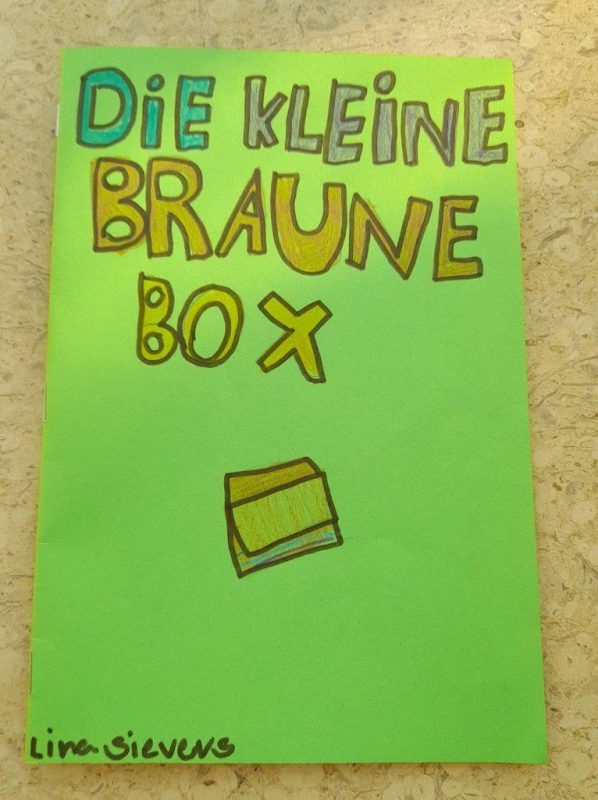 DiE KLEiNE
BRAUNE
BOX
Lina Sievers